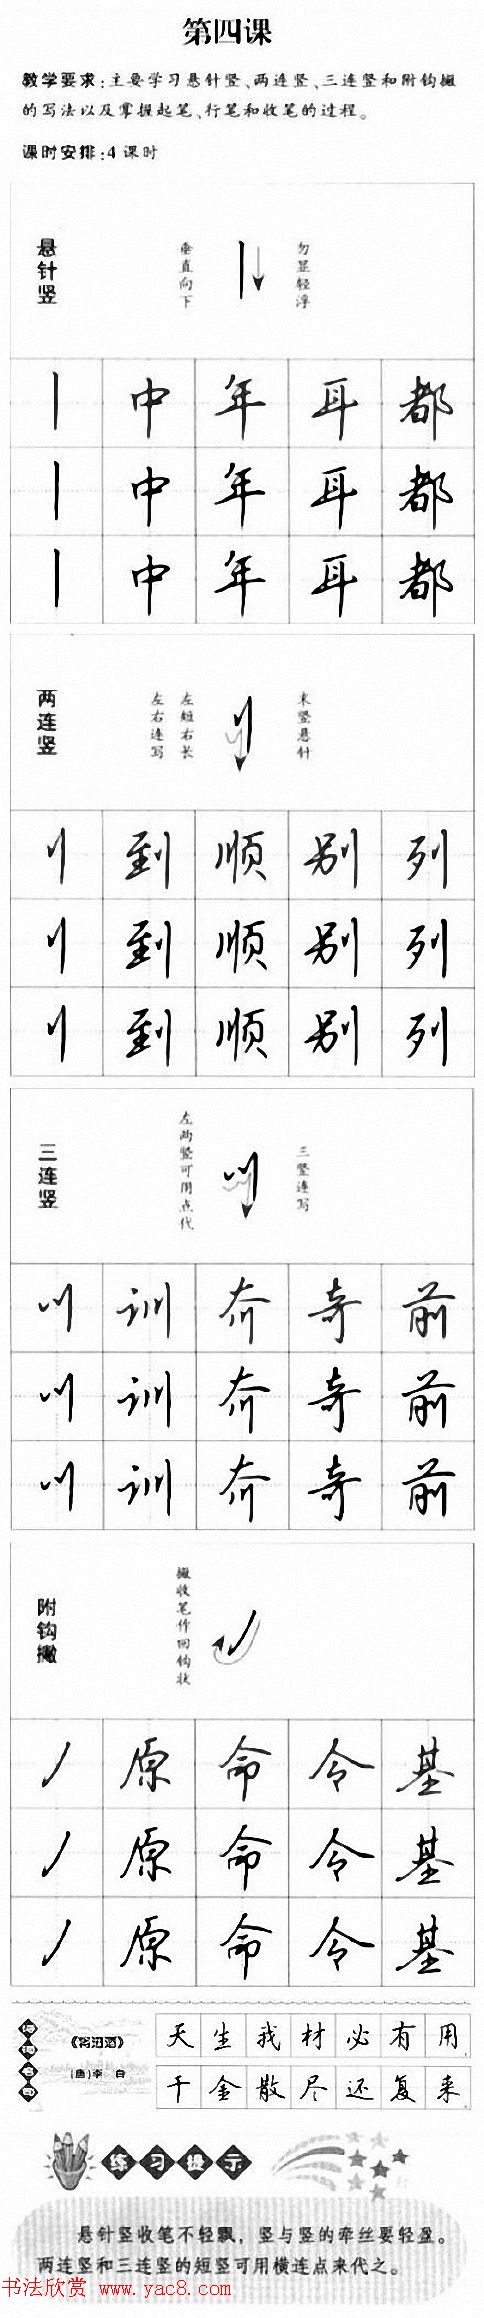 第四课
教学要求:主要学习悬针竖、两连竖、三连竖和附钩撇
的写法以及掌握起笔、行笔和收笔的过程。
课时安排:4课时
悬针竖
垂直向下
勿显轻浮
丨 中 年 耳 都
丨 中 年 耳 都
丨 中 年 耳 都
两连竖
左右连写
左短右长
末竖悬针
刂 到 顺 别 列
刂 到 顺 别 列
刂 到 顺 别 列
三连竖
左两竖可用点代
三竖连写
川 训 奈 奇 前
川 训 奈 奇 前
川 训 奈 奇 前
附钩撇
撇收笔作回钩状
丿 原 命 令 基
丿 原 命 令 基
丿 原 命 令 基
《将进酒》
(唐)李 白
天生我材必有用
千金散尽还复来
练习提示
悬针竖收笔不轻飘，竖与竖的牵丝要轻盈。
两连竖和三连竖的短竖可用横连点来代之。
书法欣赏 www.yac8.com